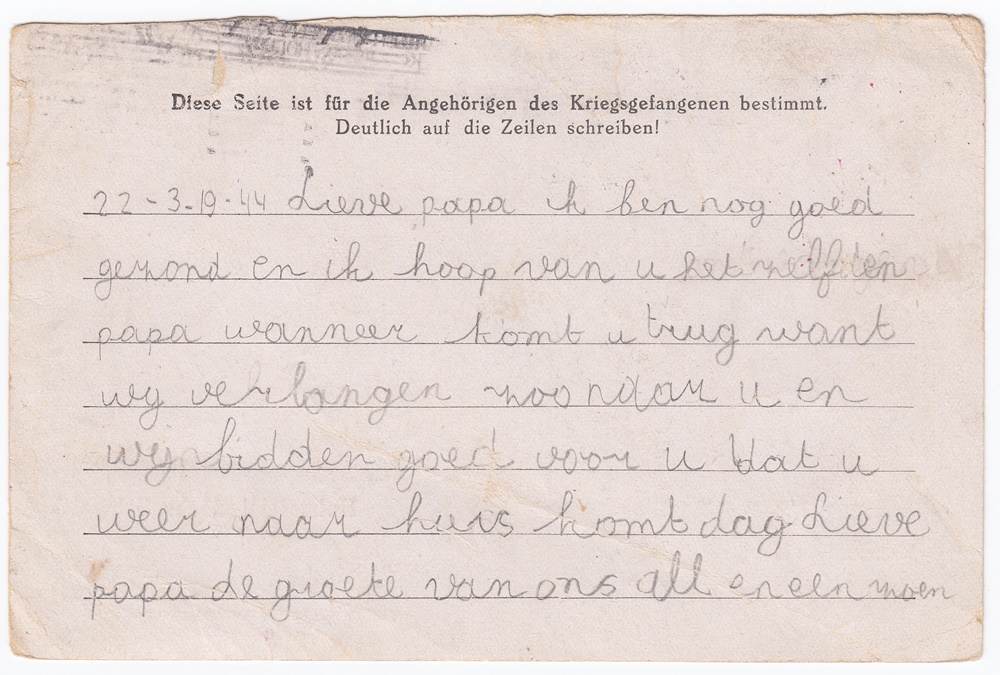 Diese Seite ist für die Angehörigen des Kriegsgefangenen bestimmt.
Deutlich auf die Zeilen schreiben!
22-3-19-44 Lieve papa ik ben nog goed
gezond en ik hoop van u het zelfden
papa wanneer komt u trug want
wy verlangen zoo naar u en
wij bidden goed voor u dat u
weer naar huis komt dag Lieve
papa de groete van ons all en een zoen